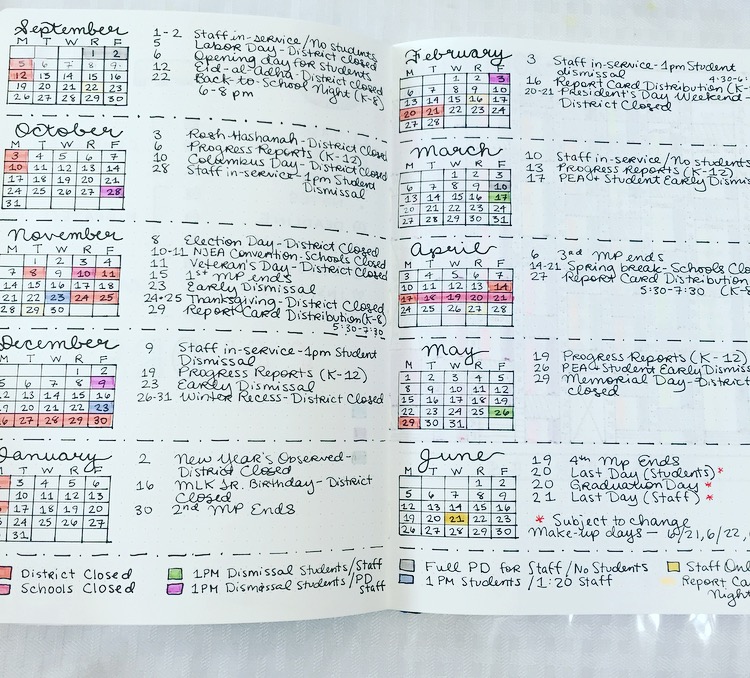 September
M T W R F
1 2
5 6 7 8 9
12 13 14 15 16
19 20 21 22 23
26 27 28 29 30
1-2 Staff in-service/No students
5 Labor Day-District closed
6 Opening day for students
12 Eid-al-Adha-District closed
22 Back-to-School Night (K-8)
6-8pm
October
M T W R F
3 4 5 6 7
10 11 12 13 14
17 18 19 20 21
24 25 26 27 28
31
3 Rosh Hashanah-District Closed
6 Progress Reports (K-12)
10 Columbus Day-District Closed
28 Staff in-service-1pm Student
Dismissal
November
M T W R F
1 2 3 4
7 8 9 10 11
14 15 16 17 18
21 22 23 24 25
28 29 30
8 Election Day-District Closed
10-11 NJEA Convention-Schools Closed
11 Veteran's Day-District Closed
15 1st MP ends
23 Early Dismissal
24+25 Thanksgiving-District Closed
29 Report Card Distribution (K-8)
5:30-7:30
December
M T W R F
1 2
5 6 7 8 9
12 13 14 15 16
19 20 21 22 23
26 27 28 29 30
9 Staff in-service-1pm Student
Dismissal
19 Progress Reports (K-12)
23 Early Dismissal
26-31 Winter Recess-District Closed
January
M T W R F
3 4 5 6
10 11 12 13
17 18 19 20
24 25 26 27
31
2 New Year's Observed-
District Closed
16 MLK Jr. Birthday-District
Closed
30 2nd MP Ends
District Closed
Schools Closed
1PM Dismissal Students/Staff
1PM Dismissal Students/PD
Staff
February
M T W R F
1 2 3
6 7 8 9 10
13 14 15 16 17
20 21 22 23 24
27 28
3 Staff in-service-1pm Student
dismissal
4:30-6:
16 Report Card Distribution (K-
20-21 President's Day Weekend-
District Closed
March
M T W R F
1 2 3
6 7 8 9 10
13 14 15 16 17
20 21 22 23 24
27 28 29 30 31
10 Staff in-service/No students
13 Progress Reports (K-12)
17 PEA+Student Early Dismiss
April
M T W R F
3 4 5 6 7
10 11 12 13 14
17 18 19 20 21
24 25 26 27 28
6 3rd MP ends
14-21 Spring break-Schools Clo
27 Report Card Distribution
5:30-7:30 (K-
May
M T W R F
1 2 3 4 5
8 9 10 11 12
15 16 17 18 19
22 23 24 25 26
29 30 31
19 Progress Reports (K-12)
26 PEA+Student Early Dismiss
29 Memorial Day-District
closed
June
M T W R F
1 2
5 6 7 8 9
12 13 14 15 16
19 20 21 22 23
26 27 28 29 30
19 4th MP Ends
20 Last Day (Students)*
20 Graduation Day *
21 Last Day (Staff) *
* Subject to change
Make-up days — 6/21, 6/22,
Full PD for Staff/No Students
1PM Students/1:20 Staff
Staff Onl
Report Ca
Night